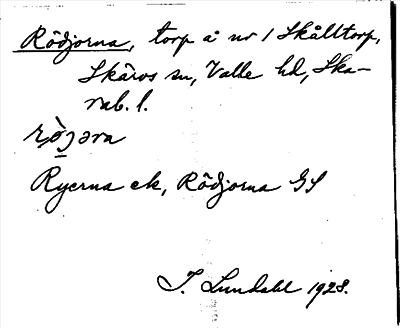 Rödjorna, torp å nr 1 Skålltorp,
Skärvs sn, Valle hd, Ska-
rab. l.
Ryerna ek, Rödjorna GS
J. Lundahl 1928.